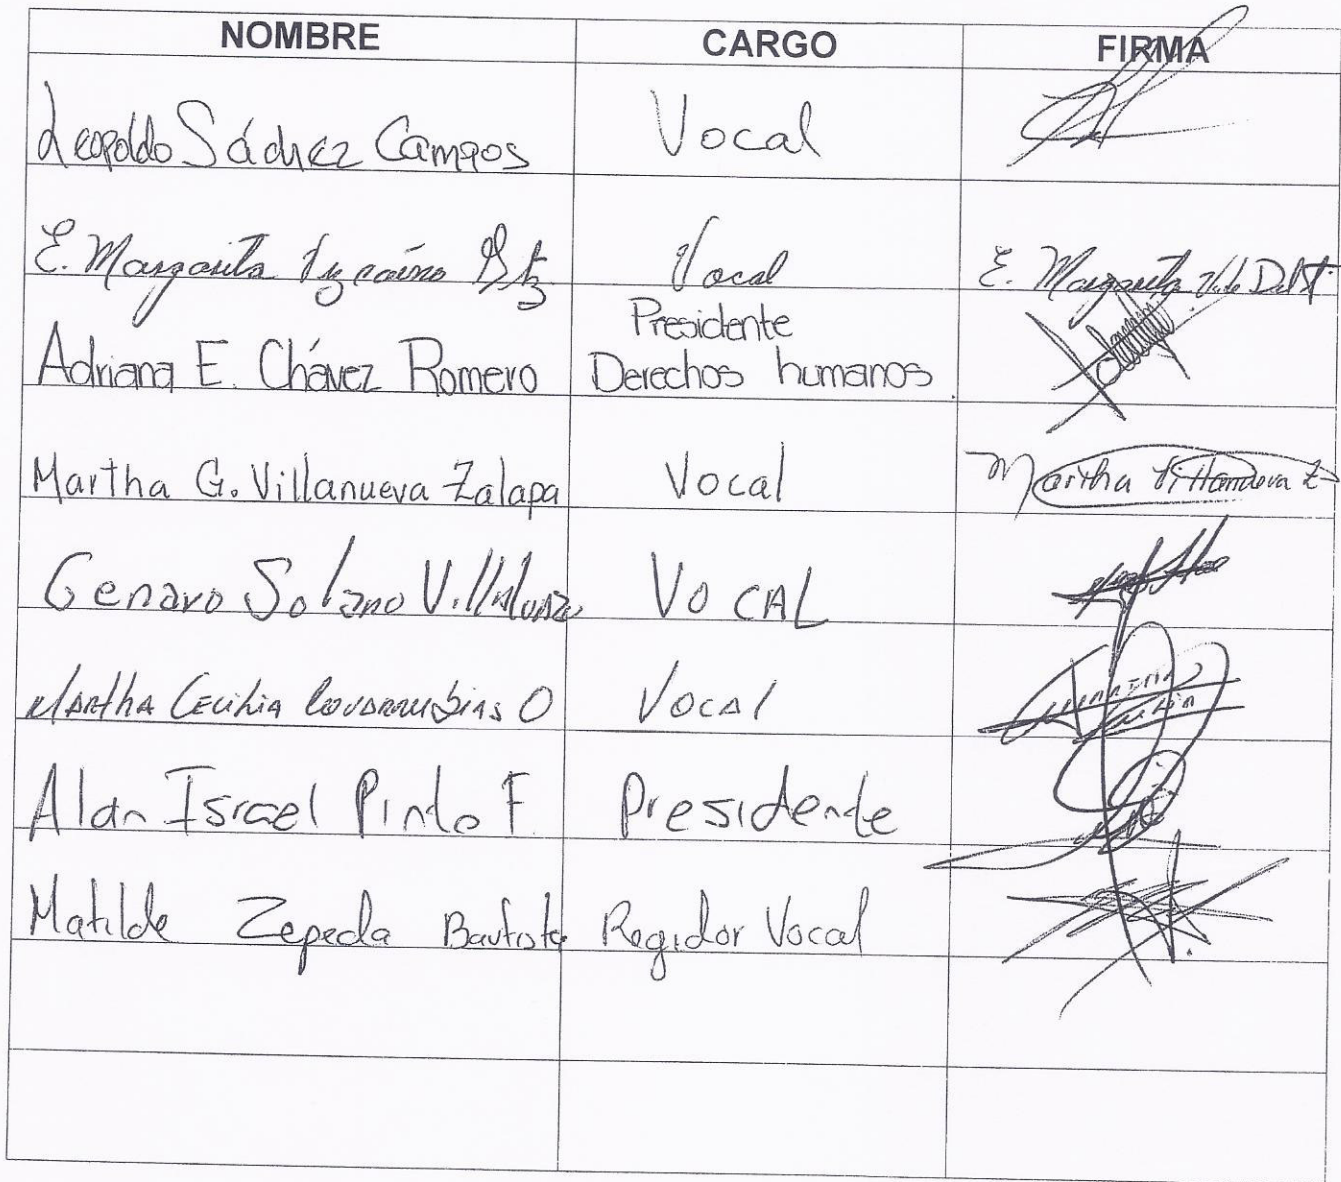 NOMBRE CARGO FIRMA
Leopoldo Sáchez Campos Vocal
E. Margarita Vocal E. Margarita
Presidente
Adriana E. Chávez Romero Derechos humanos
Martha G. Villanueva Zalapa Vocal Martha Villanueva Z
Genaro Solano VOCAL
Martha Cecilia Covarrubias O Vocal
Alan Israel Pinto F. Presidente
Matilde Zepeda Bautista Regidor Vocal